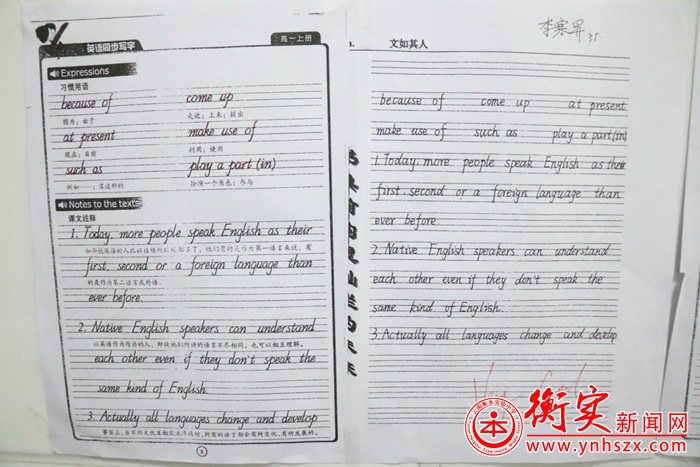 英语同步写字
高一上册
Expressions
习惯用语
because of
come up
因为；由于
走近；上来；提出
at present
make use of
现在；目前
利用；使用
such as
play a part (in)
例如……；像这种的
扮演一个角色；参与
Notes to the texts
课文注释
1. Today, more people speak English as their
first, second or a foreign language than
的是作为第二语言或外语。
ever before.
2. Native English speakers can understand
以英语作为母语的人，即使他们所讲的语言不尽相同，也可以相互理解。
each other even if they don't speak the
same kind of English.
3. Actually all languages change and develop
所有的语言都会有所变化，有所发展的。
文如其人
35.
because of come up at present
make use of such as play a part (in)
1. Today, more people speak English as their
first second or a foreign language than
ever before.
2. Native English speakers can understand
each other even if they don't speak the
same kind of English.
3. Actually all languages change and develop
衡实新闻网
www.ynhszx.com